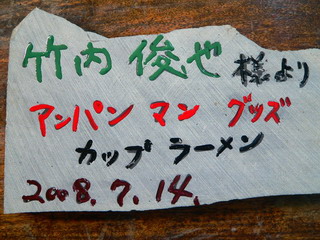 竹内 俊也 様より
アンパンマン グッズ
カップラーメン
2008.7.14.